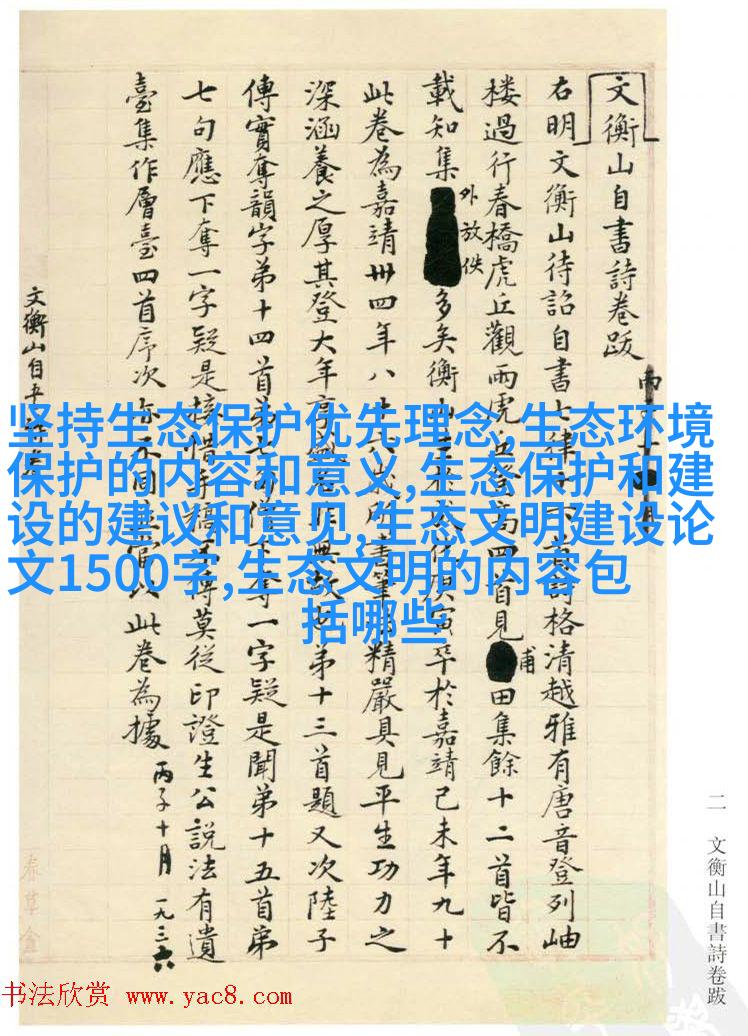 文衡山自書詩卷跋
右明文衡山待詔自書七律格清越雅有唐音登列岫
楼過行春橋虎丘觀雨虎丘登高四首見甫田集餘十二首皆不
載知集外放佚多矣衡山庚寅卒於嘉靖己未年九十
此卷為嘉靖卅四年八十六歲所書筆精嚴具見平生功力之
深涵養之厚其登大年享弟十三首題又次陸子
傳實奪韻字弟十四首弟七句借下奪一字疑是聞弟十五首弟
七句應下奪一字疑是接惜手稿不傳莫從印證生公說法有遺
臺集作層臺四首序次亦不同此卷為據
丙子十月 一九三六
文衡山自
坚持生态保护优先理念,生态环境
保护的内容和意义,生态保护和建
设的建议和意见,生态文明建设论
文1500字,生态文明的内容包
括哪些
二 文衡山自書詩卷跋
书法欣赏 www.yac8.com